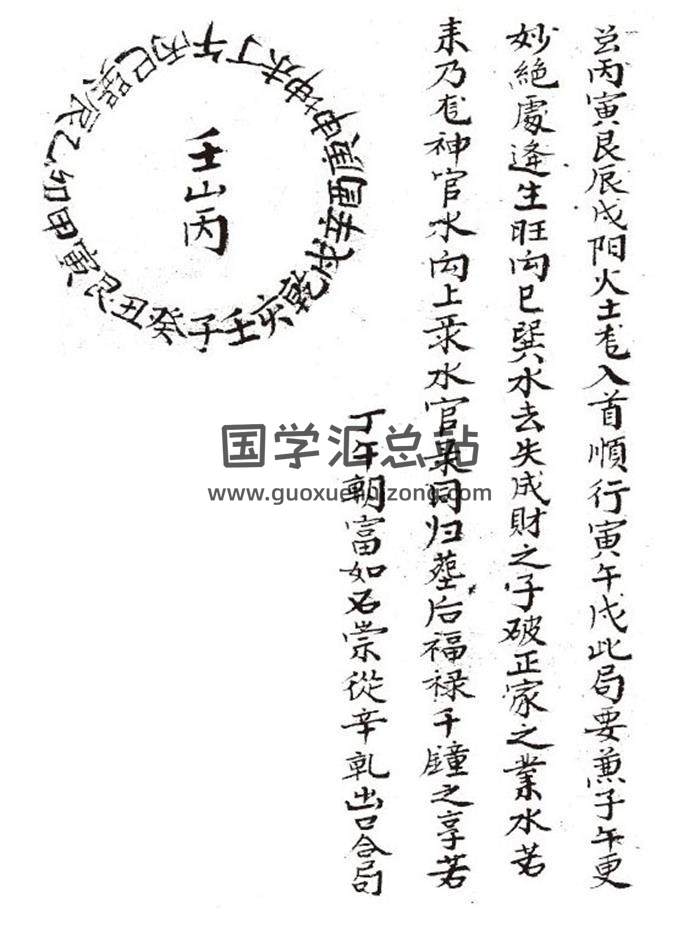 丙寅艮辰戌阳火土龙入首順行寅午戌此局要兼子午更
妙絕處逢生旺向巳巽水去失成財之子破正家之業水若
来乃龙神官水向上录水官果同归墓后福禄千鐘之享若
丁午朝富如石崇從辛乹出口合局
壬山丙
子癸丑艮寅甲卯乙辰巽巳丙午丁未坤申庚酉辛戌乾亥壬
国学汇总站
www.guoxuehuizong.com